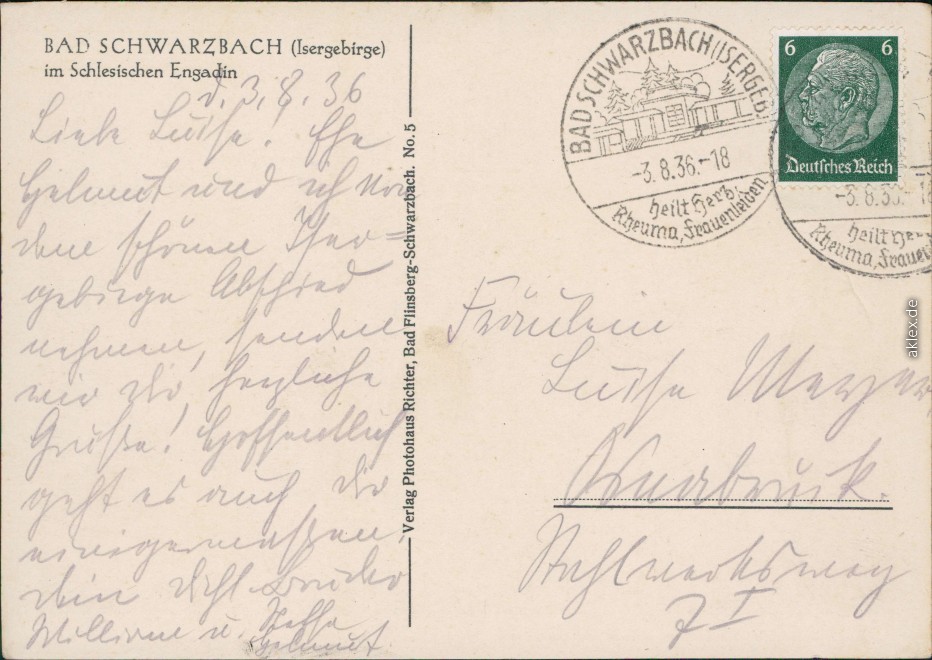 BAD SCHWARZBACH (Isergebirge)
im Schlesischen Engadin
d. 3. 8. 36
Liebe Luise! Ehe
Helmut und ich von
dem schönen Iser=
gebirge Abschied
nehmen, senden
wir dir herzliche
Grüße! Hoffentlich
geht es auch dir
einigermaßen.
dein Bruder
u. Neffe
Helmut.
Verlag Photohaus Richter, Bad Flinsberg-Schwarzbach. No. 5
BAD SCHWARZBACH (ISERGEB
-3.8.36.-18
heilt Herz,
Rheuma, Frauenleiden
6 6
Deutsches Reich
-3.8.36.-18
heilt Her
Rheuma, Frauen
Fräulein
Luise Meyer
Osnabrück.
Stahlwerksweg
7 I
aklex.de